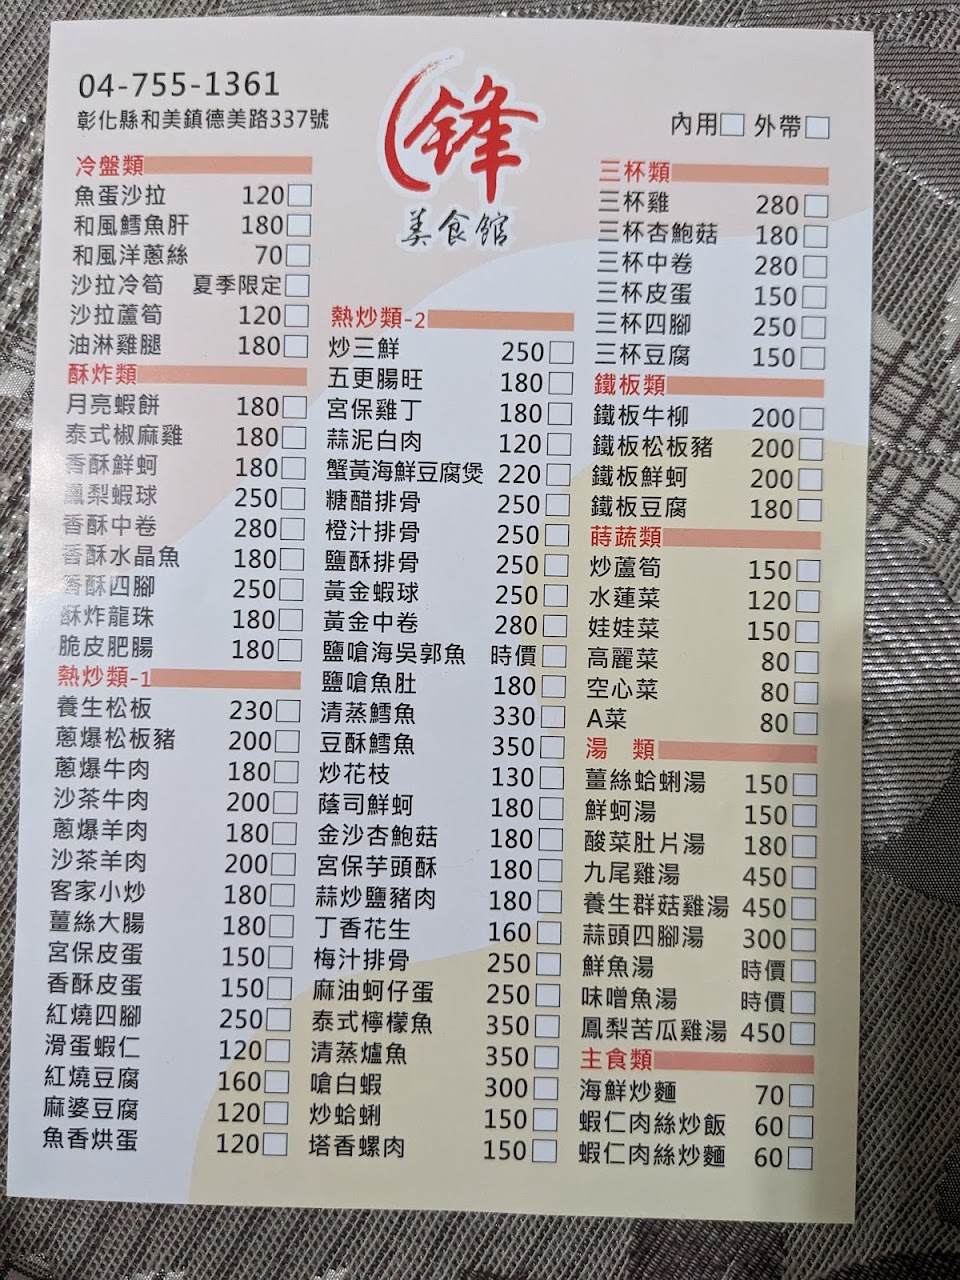 04-755-1361
彰化縣和美鎮德美路337號
鋒
美食館
內用□ 外帶□
冷盤類
魚蛋沙拉 120□
和風鱈魚肝 180□
和風洋蔥絲 70□
沙拉冷筍 夏季限定□
沙拉蘆筍 120□
油淋雞腿 180□
酥炸類
月亮蝦餅 180□
泰式椒麻雞 180□
香酥鮮蚵 180□
鳳梨蝦球 250□
香酥中卷 280□
香酥水晶魚 180□
香酥四腳 250□
酥炸龍珠 180□
脆皮肥腸 180□
熱炒類-1
養生松板 230□
蔥爆松板豬 200□
蔥爆牛肉 180□
沙茶牛肉 200□
蔥爆羊肉 180□
沙茶羊肉 200□
客家小炒 180□
薑絲大腸 180□
宮保皮蛋 150□
香酥皮蛋 150□
紅燒四腳 250□
滑蛋蝦仁 120□
紅燒豆腐 160□
麻婆豆腐 120□
魚香烘蛋 120□
熱炒類-2
炒三鮮 250□
五更腸旺 180□
宮保雞丁 180□
蒜泥白肉 120□
蟹黃海鮮豆腐煲 220□
糖醋排骨 250□
橙汁排骨 250□
鹽酥排骨 250□
黃金蝦球 250□
黃金中卷 280□
鹽嗆海吳郭魚 時價□
鹽嗆魚肚 180□
清蒸鱈魚 330□
豆酥鱈魚 350□
炒花枝 130□
蔭司鮮蚵 180□
金沙杏鮑菇 180□
宮保芋頭酥 180□
蒜炒鹽豬肉 180□
丁香花生 160□
梅汁排骨 250□
麻油蚵仔蛋 250□
泰式檸檬魚 350□
清蒸爐魚 350□
嗆白蝦 300□
炒蛤蜊 150□
塔香螺肉 150□
三杯類
三杯雞 280□
三杯杏鮑菇 180□
三杯中卷 280□
三杯皮蛋 150□
三杯四腳 250□
三杯豆腐 150□
鐵板類
鐵板牛柳 200□
鐵板松板豬 200□
鐵板鮮蚵 200□
鐵板豆腐 180□
蒔蔬類
炒蘆筍 150□
水蓮菜 120□
娃娃菜 150□
高麗菜 80□
空心菜 80□
A菜 80□
湯 類
薑絲蛤蜊湯 150□
鮮蚵湯 150□
酸菜肚片湯 180□
九尾雞湯 450□
養生群菇雞湯 450□
蒜頭四腳湯 300□
鮮魚湯 時價□
味噌魚湯 時價□
鳳梨苦瓜雞湯 450□
主食類
海鮮炒麵 70□
蝦仁肉絲炒飯 60□
蝦仁肉絲炒麵 60□